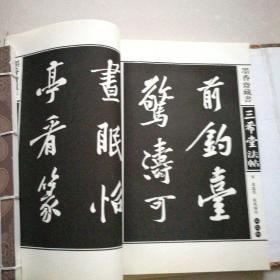 墨香斋藏書
三希堂法帖
前釣臺
驚濤可
晝眠怡
亭看篆